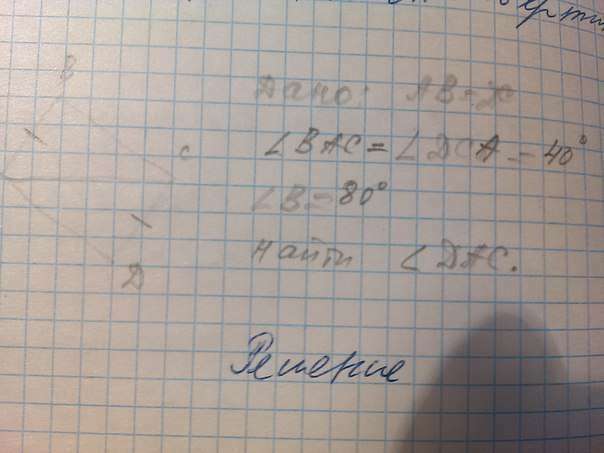 B
C
D
Дано: AB=
∠BAC = ∠DCA = 40°
∠B = 80°
Найти ∠DAC.
Решение